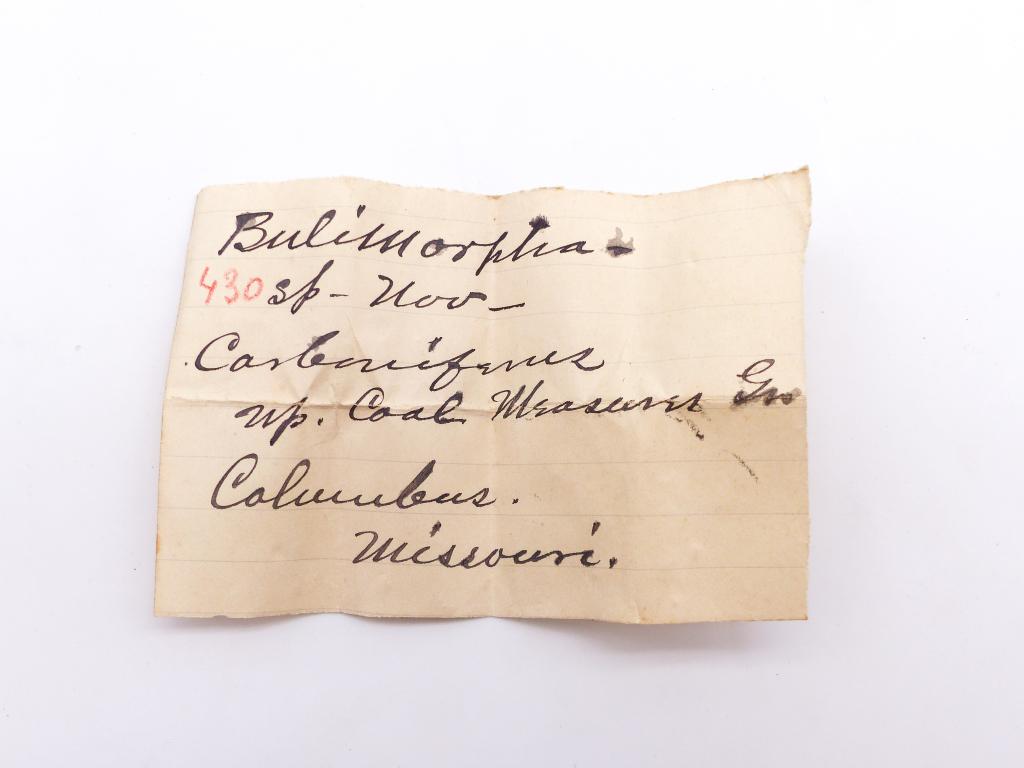 Bulimorpha -
430 sp - Nov -
Carboniferus
up. Coal Measures Gr
Columbus.
Missouri.